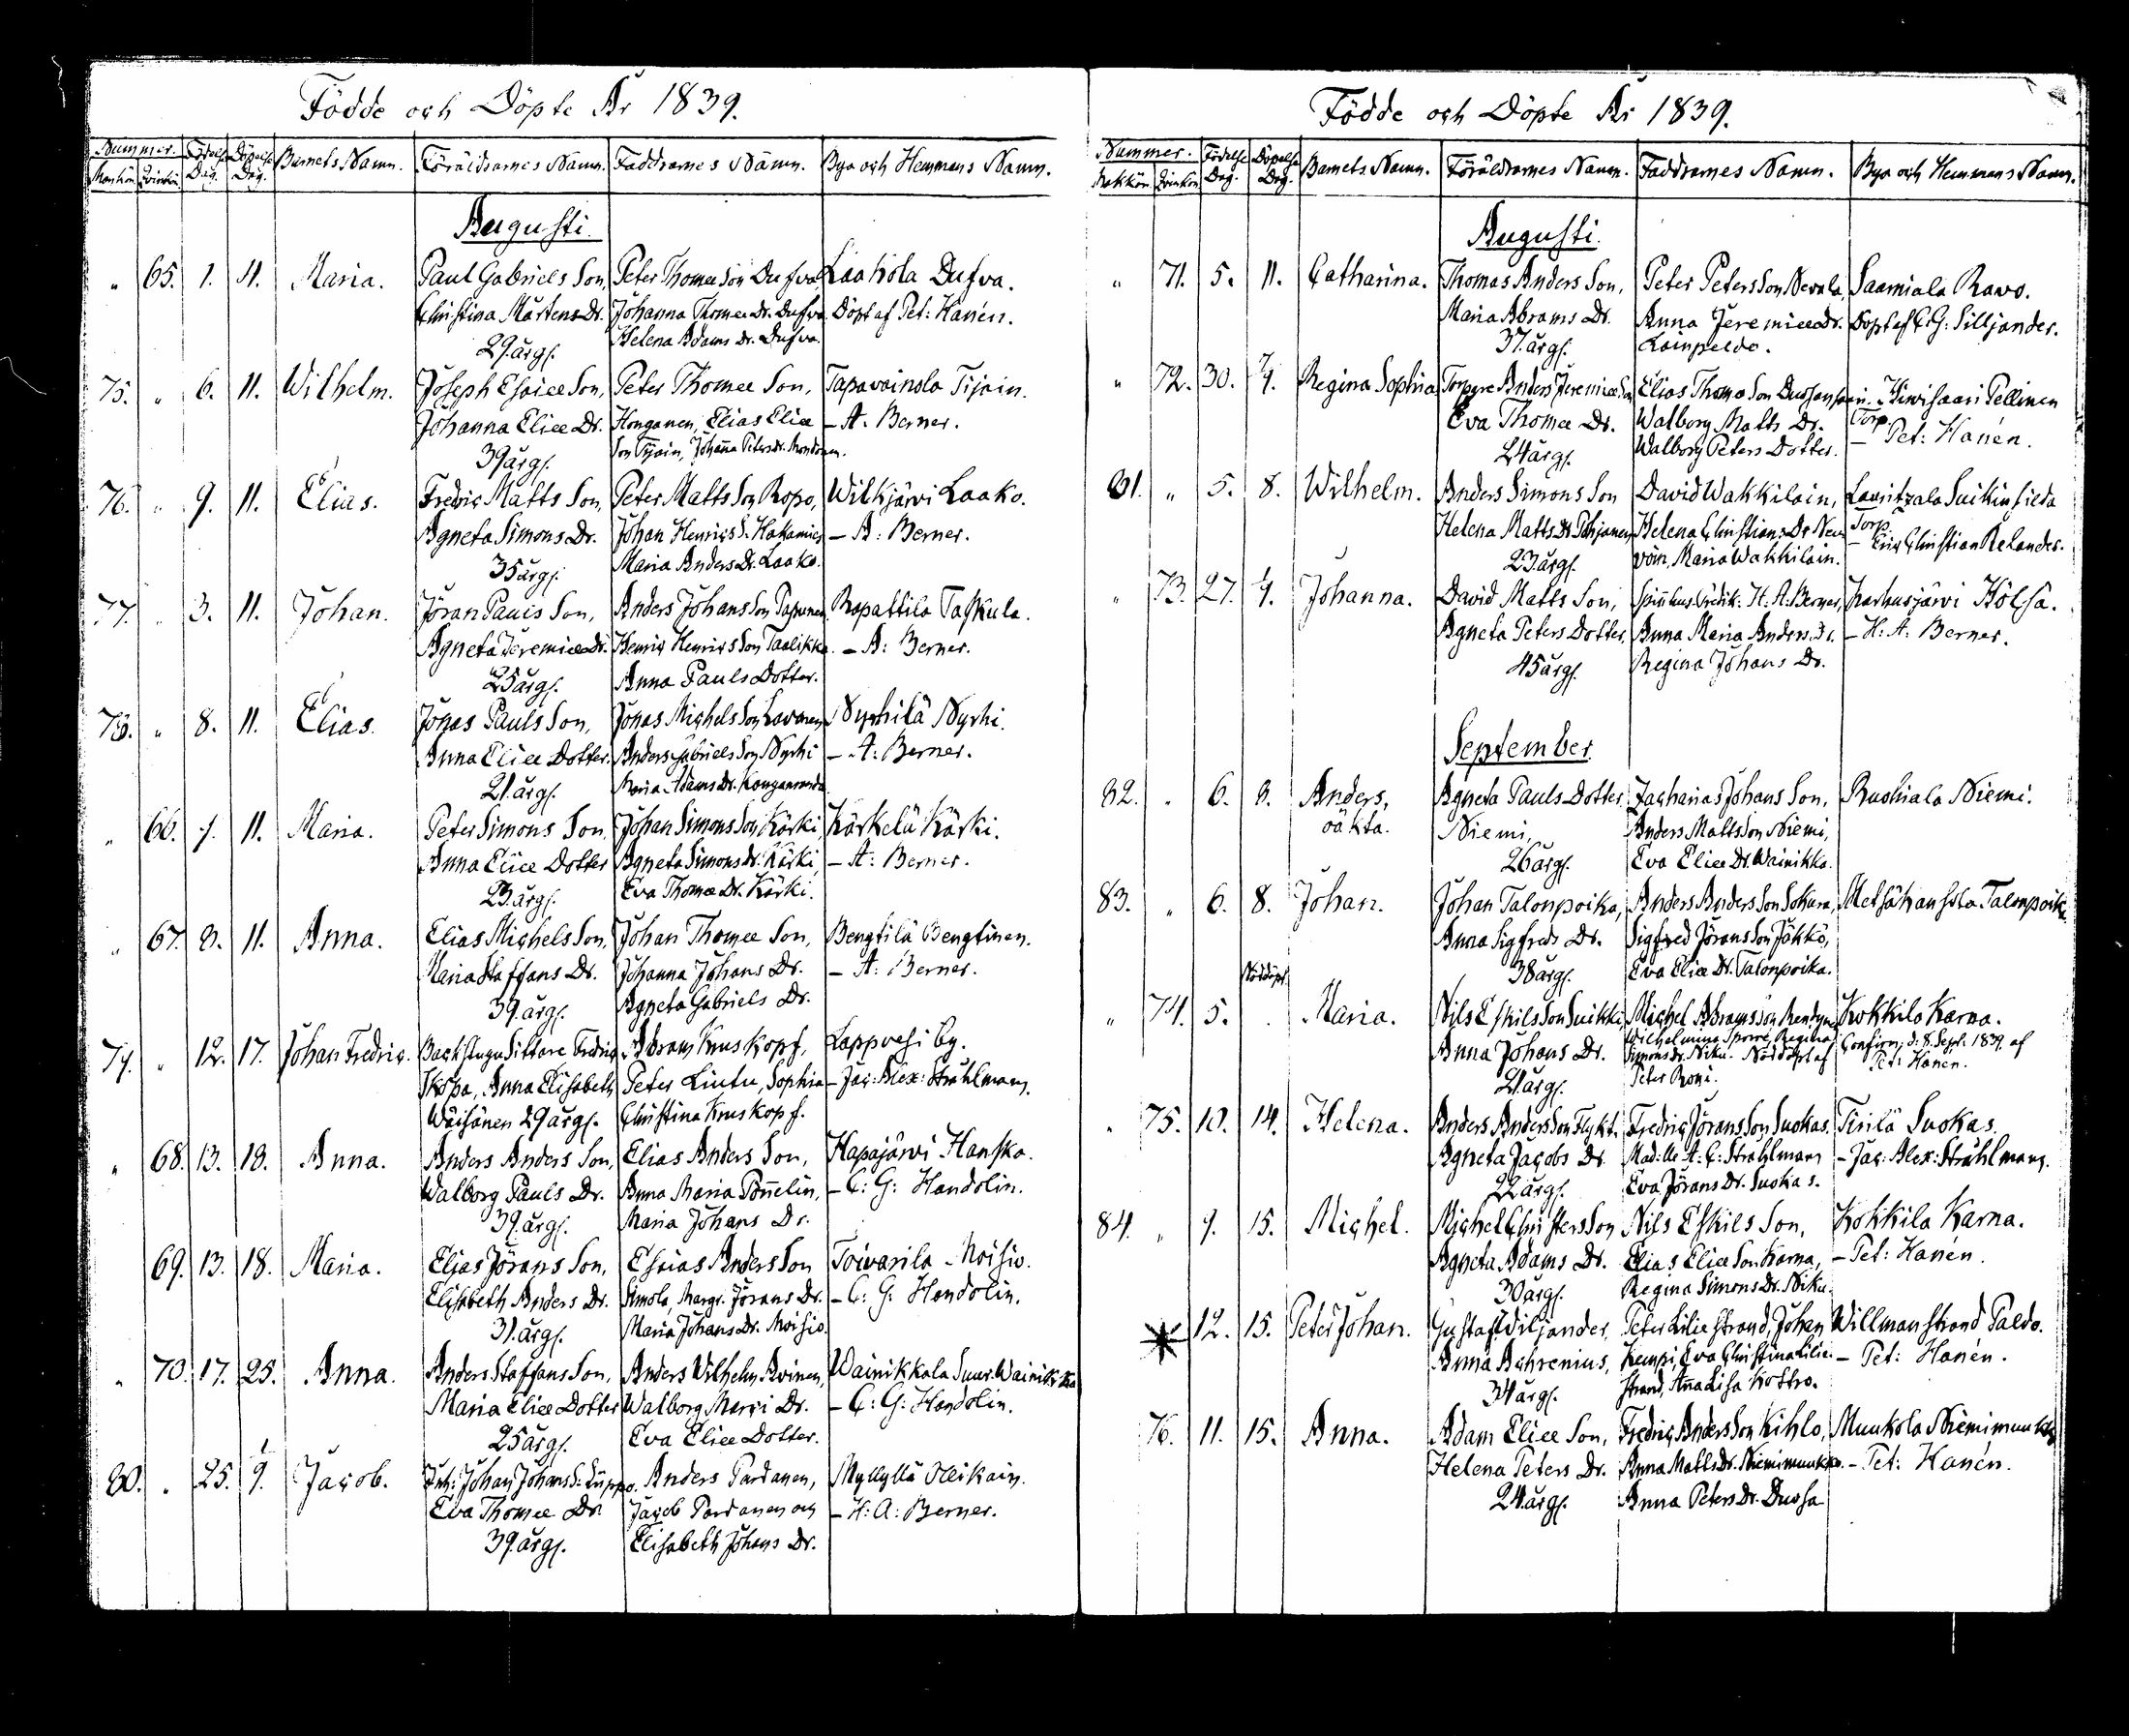 Födde och Döpte År 1839.
Nummer. Födelse Dag. Döpelse Dag. Barnets Namn. Föräldrarnes Namn. Faddrarnes Namn. Bya och Hemmans Namn.
Mankön Qvinkön
Augusti.
" 65. 1. 4. Maria. Paul Gabriels Son, Peter Thomæ Son Dufva, Laakola Dufva.
Christina Mårtens Dr. Johanna Thomæ Dr. Dufva Döpt af Pet: Hanén.
29. årg. Helena Adams Dr. Dufva.
75. " 6. 11. Wilhelm. Joseph Esaiæ Son, Peter Thomæ Son, Tapavainola Tijain.
Johanna Eliæ Dr. Honganen, Elias Eliæ – A. Berner.
39 årg. Son Tijain, Johanna Peters Dr. Mondonen.
76. " 9. 11. Elias. Fredric Matts Son, Peter Matts Son Ropo, Wilkjärvi Laako.
Agneta Simons Dr. Johan Henrics S. Hakamies – A: Berner.
35 årg. Maria Anders Dr. Laako.
77. " 3. 11. Johan. Jöran Pauls Son, Anders Johans Son Tapanen Ropattila Taskula.
Agneta Jeremiæ Dr. Henric Henrics Son Taalikka – A: Berner.
25 årg. Anna Pauls Dotter.
78. " 8. 11. Elias. Jonas Pauls Son, Jonas Michels Son Lavonen Nyrhilä Nyrhi.
Anna Eliæ Dotter. Anders Gabriels Son Nyrhi – A: Berner.
21. årg. Maria Adams Dr.
" 66. 7. 11. Maria. Peter Simons Son, Johan Simons Son Kärki, Kärkelä Kärki.
Anna Eliæ Dotter Agneta Simons Dr. Kärki, – A: Berner.
23. årg. Eva Thomæ Dr. Kärki.
" 67. 8. 11. Anna. Elias Michels Son, Johan Thomæ Son, Bengtilä Bengtinen.
Maria Staffans Dr. Johanna Johans Dr. – A: Berner.
39. årg. Agneta Gabriels Dr.
79. " 12. 17. Johan Fredric. Backstugu Sittare Fredric Abram Kruskopf, Lappvesi by.
Skopa, Anna Elisabeth Peter Lintu, Sophia – Jac: Alex: Stråhlmann.
Wäisänen 29 årg. Christina Kruskopf.
" 68. 13. 18. Anna. Anders Anders Son, Elias Anders Son, Hapajärvi Hanska.
Walborg Pauls Dr. Anna Maria Ponnelin, – C: G: Handolin.
39. årg. Maria Johans Dr.
69. 13. 18. Maria. Elias Jörans Son, Esaias Anders Son Toivarila Moisio.
Elisabeth Anders Dr. Simola, Margr. Jörans Dr. – C: G: Handolin.
31. årg. Maria Johans Dr. Moisio.
" 70. 17. 25. Anna. Anders Staffans Son, Anders Wilhelm Avinen, Wainikkala Suur Wainikka
Maria Eliæ Dotter Walborg Marci Dr. – C: G: Handolin.
25 årg. Eva Eliæ Dotter.
80. " 25. 9. Jacob. Inh: Johan Johans S: Lyyppo. Anders Pardanen, Myllylä Ollikain.
Eva Thomæ Dr. Jacob Pardanen och – H: A: Berner.
39. årg. Elisabeth Johans Dr.
Födde och Döpte År 1839.
Nummer. Födelse Dag. Döpelse Dag. Barnets Namn. Föräldrarnes Namn. Faddrarnes Namn. Bya och Hemmans Namn.
Makkön Qvinkön
Augusti.
" 71. 5. 11. Catharina. Thomas Anders Son, Peter Peters Son Nevala, Saamiala Ravo.
Maria Abrams Dr. Anna Jeremiæ Dr. Döpt af C: G: Silljander.
37. årg. Lainpeldo.
" 72. 30. 9/4. Regina Sophia Torpare Anders Jeremiæ Son Elias Thomæ Son Hiwisaari Pellinen
Eva Thomæ Dr. Walborg Matts Dr. Torp
24 årg. Walborg Peters Dotter. – Pet: Hanén.
81. " 5. 8. Wilhelm. Anders Simons Son David Wakkilain, Lauritzala
Helena Matts Dr Pohjonen Helena Christians Dr Torp.
23. årg. Maria Wakkilain. – Eric Christian Relander.
" 73. 27. 9. Johanna. David Matts Son, H. A: Berner, Karhusjärvi Hölsä.
Agneta Peters Dotter, Anna Maria Anders Dr. – H: A: Berner.
45 årg. Regina Johans Dr.
September.
82. " 6. 8. Anders, Agneta Pauls Dotter Zacharias Johans Son, Ruohiala Niemi.
oäkta. Niemi, Anders Matts Son Niemi,
26 årg. Eva Eliæ Dr. Wainikka.
83. " 6. 8. Johan. Johan Talonpoika, Anders Anders Son Sokura, Metsäkansola Talonpoika
Anna Sigfreds Dr. Sigfred Jörans Son Jäkkö,
38 årg. Eva Eliæ Dr. Talonpoika.
Nöddöpt
" 74. 5. . Maria. Nils Eskils Son Suikki, Michel Abrams Son Kokkila Karna.
Anna Johans Dr. Wilhelmina Sporre, Regina Confirm: d. 8. Sept. 1839. af
21. årg. Simons Dr. Niku. Nöddöpt af Pet: Hanén.
Peter Roni.
" 75. 10. 14. Helena. Anders Anders Son Flykt. Fredric Jörans Son Suokas. Tirilä Suokas.
Agneta Jacobs Dr. Mad:lle A: C: Stråhlmann – Jac: Alex: Stråhlmann.
22 årg. Eva Jörans Dr. Suokas.
84. " 9. 15. Michel. Michel Christers Son Nils Eskils Son, Kokkila Karna.
Agneta Adams Dr. Elias Eliæ Son Karna, – Pet: Hanén.
30 årg. Regina Simons Dr. Niku.
12. 15. Peter Johan. Gustaf Wiljander, Peter Lilie Strand, Johan Willmanstrand Paldo.
Anna Ahrenius, Kempi, Eva Christina Lilie- – Pet: Hanén.
34 årg. strand, Anna Lisa Kostro.
76. 11. 15. Anna. Adam Eliæ Son, Fredric Anders Son Kihlo, Muukola Niemimuukko
Helena Peters Dr. Anna Matts Dr. Niemimuukko. – Pet: Hanén.
24. årg. Anna Peters Dr. Dussa